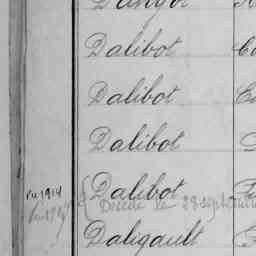 Dangot
Dalibot
Dalibot
Dalibot
vu 1914
Dalibot
Décédé le 28 septembre
Daligault